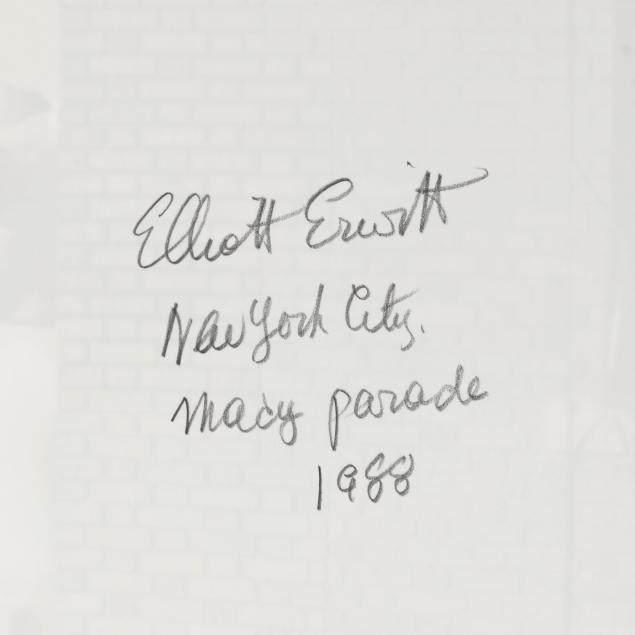 Elliott Erwitt
New York City.
Macy parade
1988